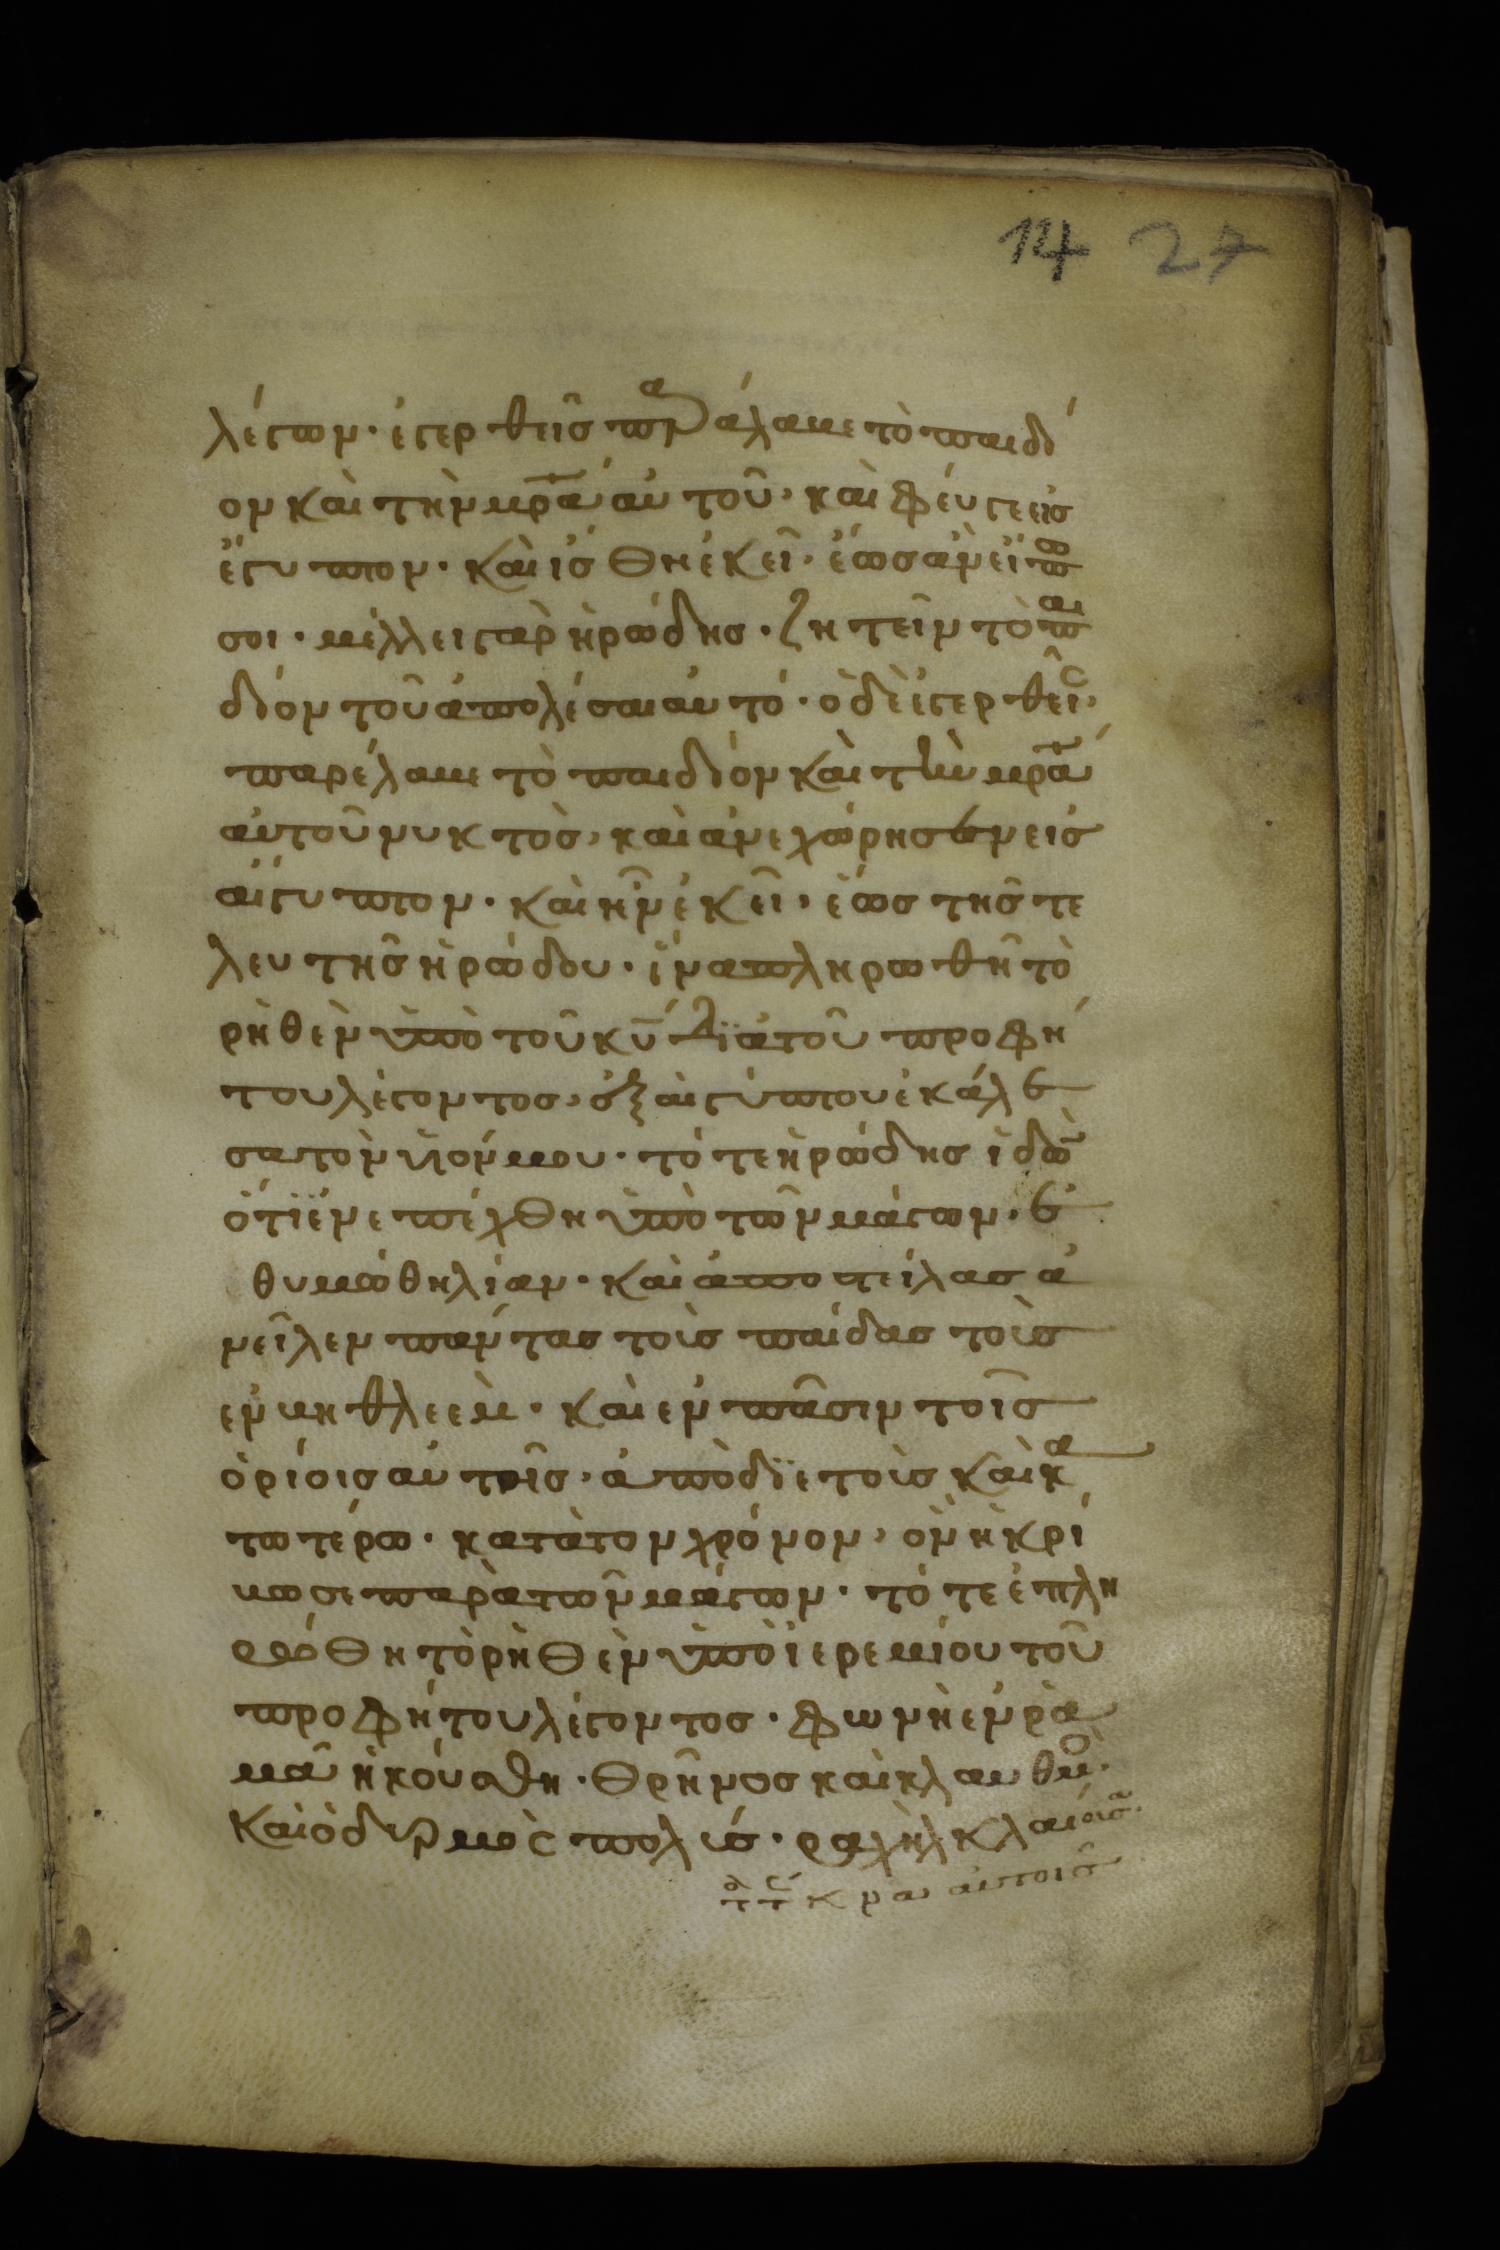 14 27
λέγων· ἐγερθεὶς παράλαβε τὸ παιδί
ον καὶ τὴν μρ̅α αὐτοῦ, καὶ φεύγε εἰς
ἔγυπτον· καὶ ἴσθη ἐκεῖ, ἕως ἀν εἴπω
σοι· μέλλει γὰρ ἡρώδης· ζητεῖν τὸ παι
δίον τοῦ ἀπολέσαι αὐτό· ὁ δὲ ἐγερθεὶς,
παρέλαβε τὸ παιδίον καὶ τὴν μρ̅α
αὐτοῦ νυκτὸς, καὶ ἀνεχώρησεν εἰς
αἴγυπτον· καὶ ἦν ἐκεῖ, ἕως τῆς τε
λευτῆς ἡρώδου· ἵνα πληρωθῆ τὸ
ρὴθὲν ὑπὸ τοῦ κ̅υ διὰ τοῦ προφή
του λέγοντος, ἐξ αιγύπτου ἐκάλε
σα τὸν υἱόν μου· τότε ἡρώδης ἰδὼν
ὅτι ἐνεπέχθη ὑπὸ τῶν μάγων· ἐ
θυμώθη λίαν· καὶ ἀποστείλας ἀ
νεῖλεν πάντας τοὺς παίδας τοὺς
ἐν βηθλεὲμ· καὶ ἐν πᾶσιν τοῖς
ὁρίοις αὐτοῖς, ἀπὸ διετοὺς καὶ κα
τωτέρω· κατὰ τον χρόνον, ὃν ἠκρί
βωσε παρὰ τῶν μάγων· τότε ἐπλη
ρώθη τὸ ρὴθὲν ὑπὸ ἱερεμίου τοῦ
προφήτου λέγοντος· φωνὴ ἐν ρα
μᾶ ἠκούσθη· θρῆνος καὶ κλαυθμὸς·
καὶ ὀδυρμὸς πολύς· ραχὴλ κλαίουσα